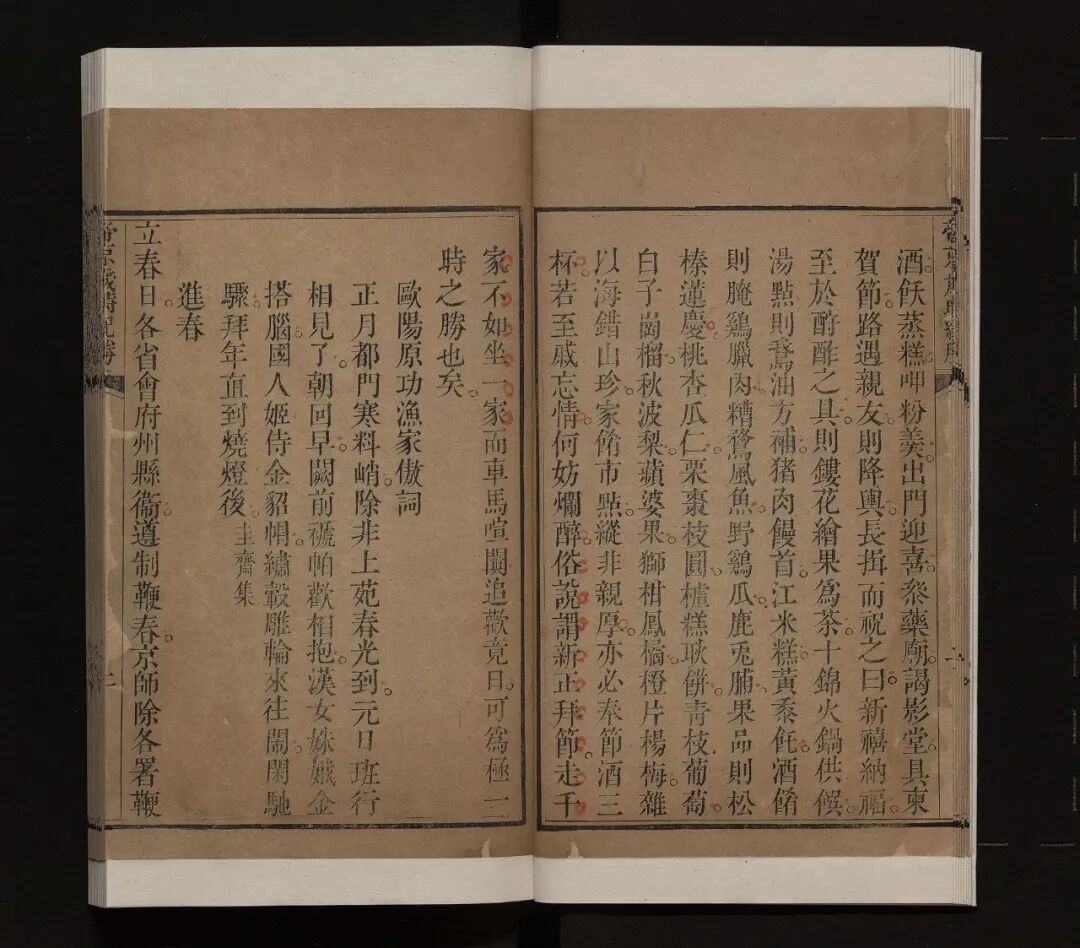 酒飫蒸糕。呷粉羹。出門迎喜。叅藥廟。謁影堂。具柬
賀節。路遇親友。則降輿長揖。而祝之曰新禧納福。
至於酧酢之具。則鏤花繪果爲茶。十錦火鍋供饌。
湯點則鵞油方補。猪肉饅首。江米糕。黃黍飥。酒餚
則腌鷄臘肉。糟鶩風魚。野鷄爪。鹿兎脯。果品則松
榛蓮慶。桃杏瓜仁。栗棗枝圓。樝糕耿餅。青枝葡萄。
白子崗榴。秋波梨。蘋婆果。獅柑鳳橘。橙片楊梅。雜
以海錯山珍。家餚市點。縱非親厚。亦必奉節酒三
杯。若至戚忘情。何妨爛醉。俗說謂新正拜節。走千
家不如坐一家。而車馬喧闐。追歡竟日。可爲極一
時之勝也矣。
歐陽原功漁家傲詞
正月都門寒料峭。除非上苑春光到。元日班行
相見了。朝回早。闕前褫帕歡相抱。漢女姝娥金
搭腦。國人姬侍金貂㡌。繡轂雕輪來往鬧。閑馳
驟。拜年直到燒燈後。圭齋集
進春
立春日。各省會府州縣衞。遵制鞭春。京師除各署鞭
帝京歲時紀勝